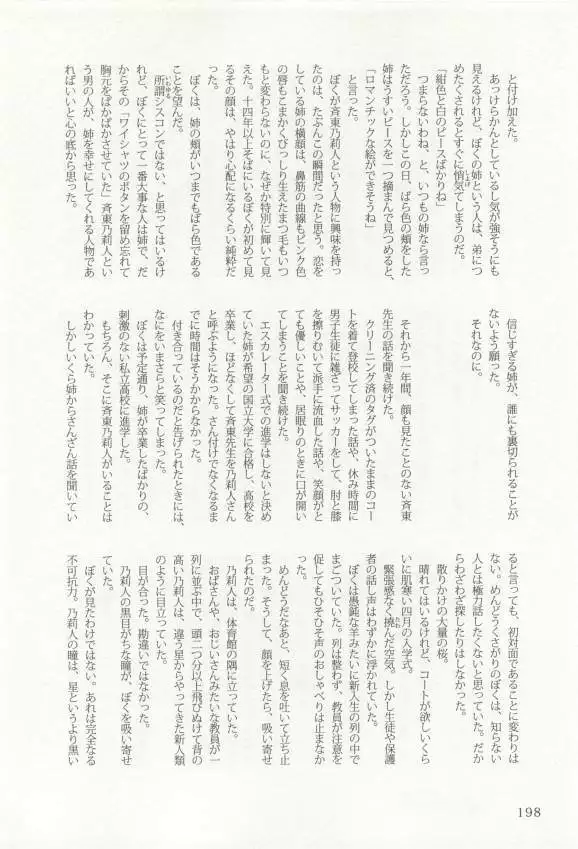 と付け加えた。
あっけらかんとしているし気が強そうにも
見えるけれど、ぼくの姉という人は、弟につ
めたくされるとすぐに悄気てしまうのだ。
「紺色と白のピースばかりね」
つまらないわね、と、いつもの姉なら言っ
ただろう。しかしこの日。ばら色の頬をした
姉はうすいピースを一つ摘まんで見つめると、
「ロマンチックな絵ができそうね」
と言った。
ぼくが斉東乃莉人という人物に興味を持っ
たのは、たぶんこの瞬間だったと思う。恋を
している姉の横顔は、鼻筋の曲線もピンク色
の唇もこまかくびっしり生えたまつ毛もいつ
もと変わらないのに、なぜか特別に輝いて見
えた。十四年以上そばにいるぼくが初めて見
るその顔は、やはり心配になるくらい純粋だ
った。
ぼくは、姉の頬がいつまでもばら色である
ことを望んだ。
所謂シスコンではない、と思ってはいるけ
れど、ぼくにとって一番大事な人は姉で、だ
からその「ワイシャツのボタンを留め忘れて
胸元をぱかぱかさせていた」斉東乃莉人とい
う男の人が、姉を幸せにしてくれる人物であ
ればいいと心の底から思った。
信じすぎる姉が、誰にも裏切られることが
ないよう願った。
それなのに。
それから一年間、顔も見たことのない斉東
先生の話を聞き続けた。
クリーニング済のタグがついたままのコー
トを着て登校してしまった話や、休み時間に
男子生徒に雑ざってサッカーをして、肘と膝
を擦りむいて派手に流血した話や、笑顔がと
ても優しいことや、居眠りのときに口が開い
てしまうことを聞き続けた。
エスカレーター式での進学はしないと決め
ていた姉が希望の国立大学に合格し、高校を
卒業し、ほどなくして斉東先生を乃莉人さん
と呼ぶようになった。さん付けでなくなるま
でに時間はそうかからなかった。
付き合っているのだと告げられたときには、
なにをいまさらと笑ってしまった。
ぼくは予定通り、姉が卒業したばかりの、
刺激のない私立高校に進学した。
もちろん、そこに斉東乃莉人がいることは
わかっていた。
しかしいくら姉からさんざん話を聞いてい
ると言っても、初対面であることに変わりは
ない。めんどうくさがりのぼくは、知らない
人とは極力話したくないと思っていた。だか
らわざわざ探したりはしなかった。
散りかけの大量の桜。
晴れてはいるけれど、コートが欲しいくら
いに肌寒い四月の入学式。
緊張感なく撓んだ空気。しかし生徒や保護
者の話し声はわずかに浮かれていた。
ぼくは愚鈍な羊みたいに新入生の列の中で
まごついていた。列は整わず、教員が注意を
促してもひそひそ声のおしゃべりは止まなか
った。
めんどうだなあと、短く息を吐いて立ち止
まった。そうして、顔を上げたら、吸い寄せ
られたのだ。
乃莉人は、体育館の隅に立っていた。
おばさんや、おじいさんみたいな教員が一
列に並ぶ中で、頭二つ分以上飛びぬけて背の
高い乃莉人は、違う星からやってきた新人類
のように目立っていた。
目が合った。勘違いではなかった。
乃莉人の黒目がちな瞳が、ぼくを吸い寄せ
ていた。
ぼくが見たわけではない。あれは完全なる
不可抗力。乃莉人の瞳は、星というより黒い
198